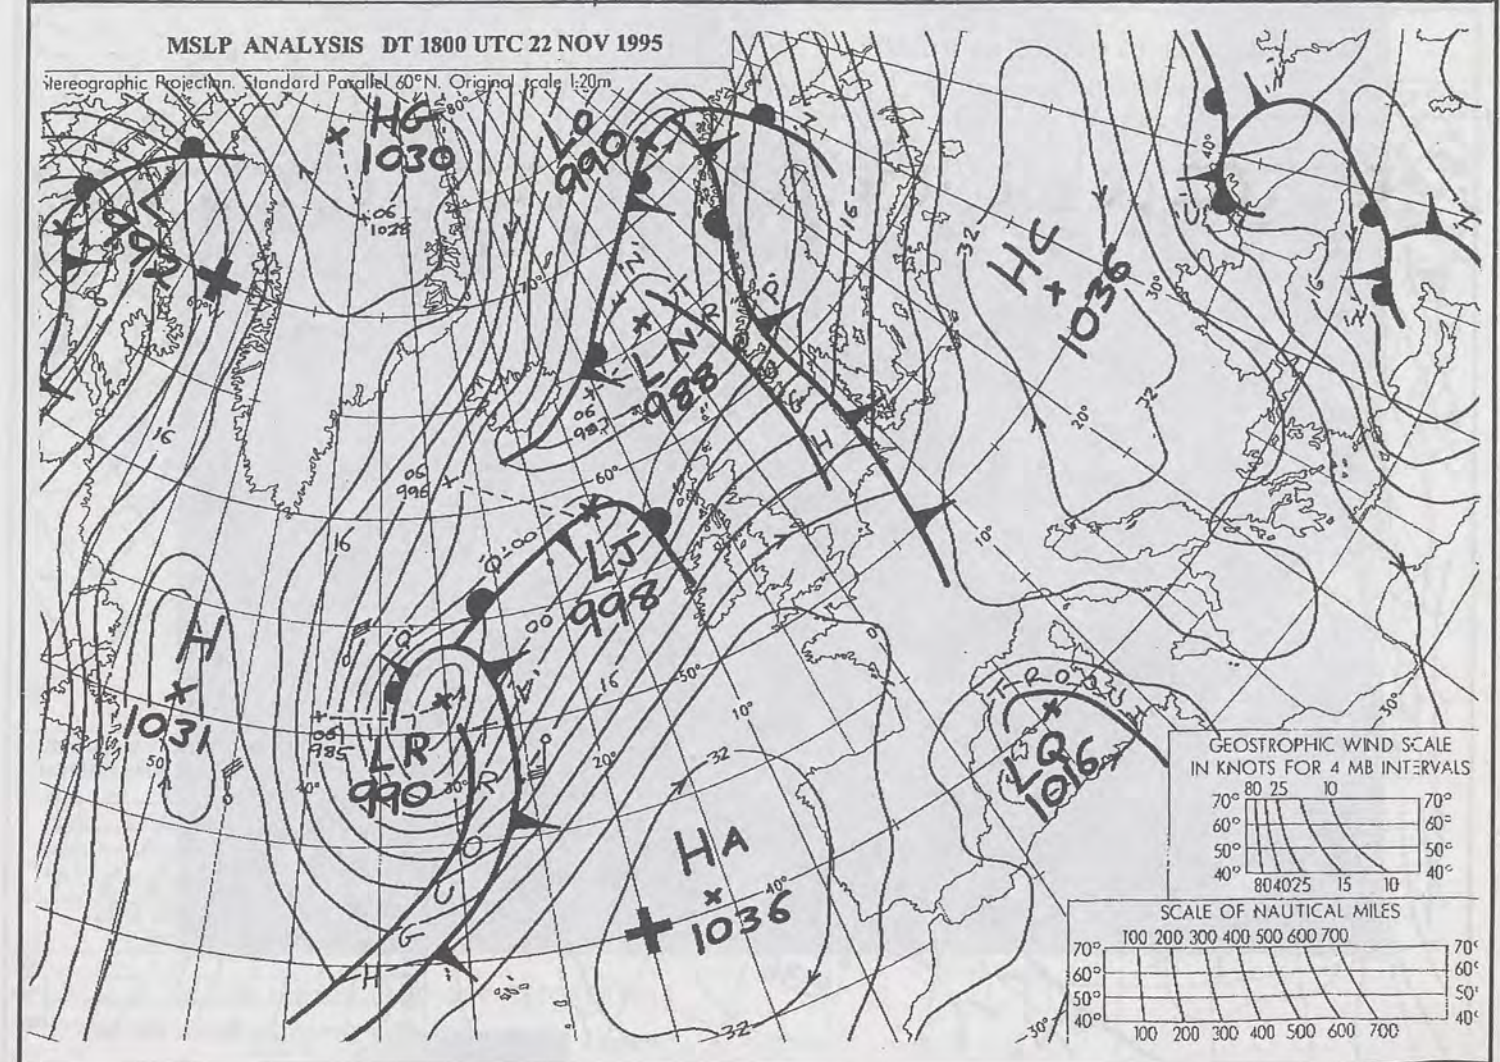 MSLP ANALYSIS DT 1800 UTC 22 NOV 1995
Stereographic Projection. Standard Parallel 60°N. Original scale 1:20m
HG
1030
06
1028
80°
LO
990
L
992
60°
70°
16
N'
P'
TROUGH
LN
988
06
987
16
HC
1036
32
32
40°
30°
20°
10°
16
16
06
996
60°
LJ
998
00
00
Q'
16
H
1031
50
06
985
LR
990
40°
30°
TROUGH
V'
16
50°
10°
20°
32
HA
1036
40°
32
30°
TROUGH
LQ
1016
30°
GEOSTROPHIC WIND SCALE
IN KNOTS FOR 4 MB INTERVALS
80 25 10
70° 70°
60° 60°
50° 50°
40° 40°
80 40 25 15 10
SCALE OF NAUTICAL MILES
100 200 300 400 500 600 700
70° 70°
60° 60°
50° 50°
40° 40°
100 200 300 400 500 600 700